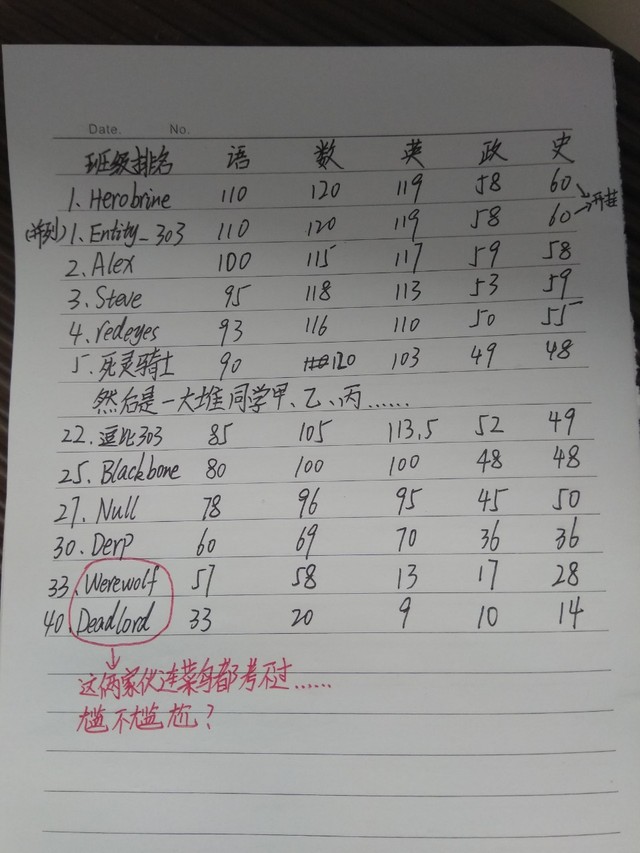 Date. No.
班级排名 语 数 英 政 史
1. Herobrine 110 120 119 58 60
(并列) 1. Entity_303 110 120 119 58 60 →开挂
2. Alex 100 115 117 59 58
3. Steve 95 118 113 53 59
4. redeyes 93 116 110 50 55
5. 死灵骑士 90 120 103 49 48
然后是一大堆同学甲、乙、丙……
22. 逗比303 85 105 113.5 52 49
25. Blackbone 80 100 100 48 48
27. Null 78 96 95 45 50
30. Derp 60 69 70 36 36
33. Werewolf 57 58 13 17 28
40. Deadlord 33 20 9 10 14
这俩家伙连菜鸟都考不过……
尴不尴尬？